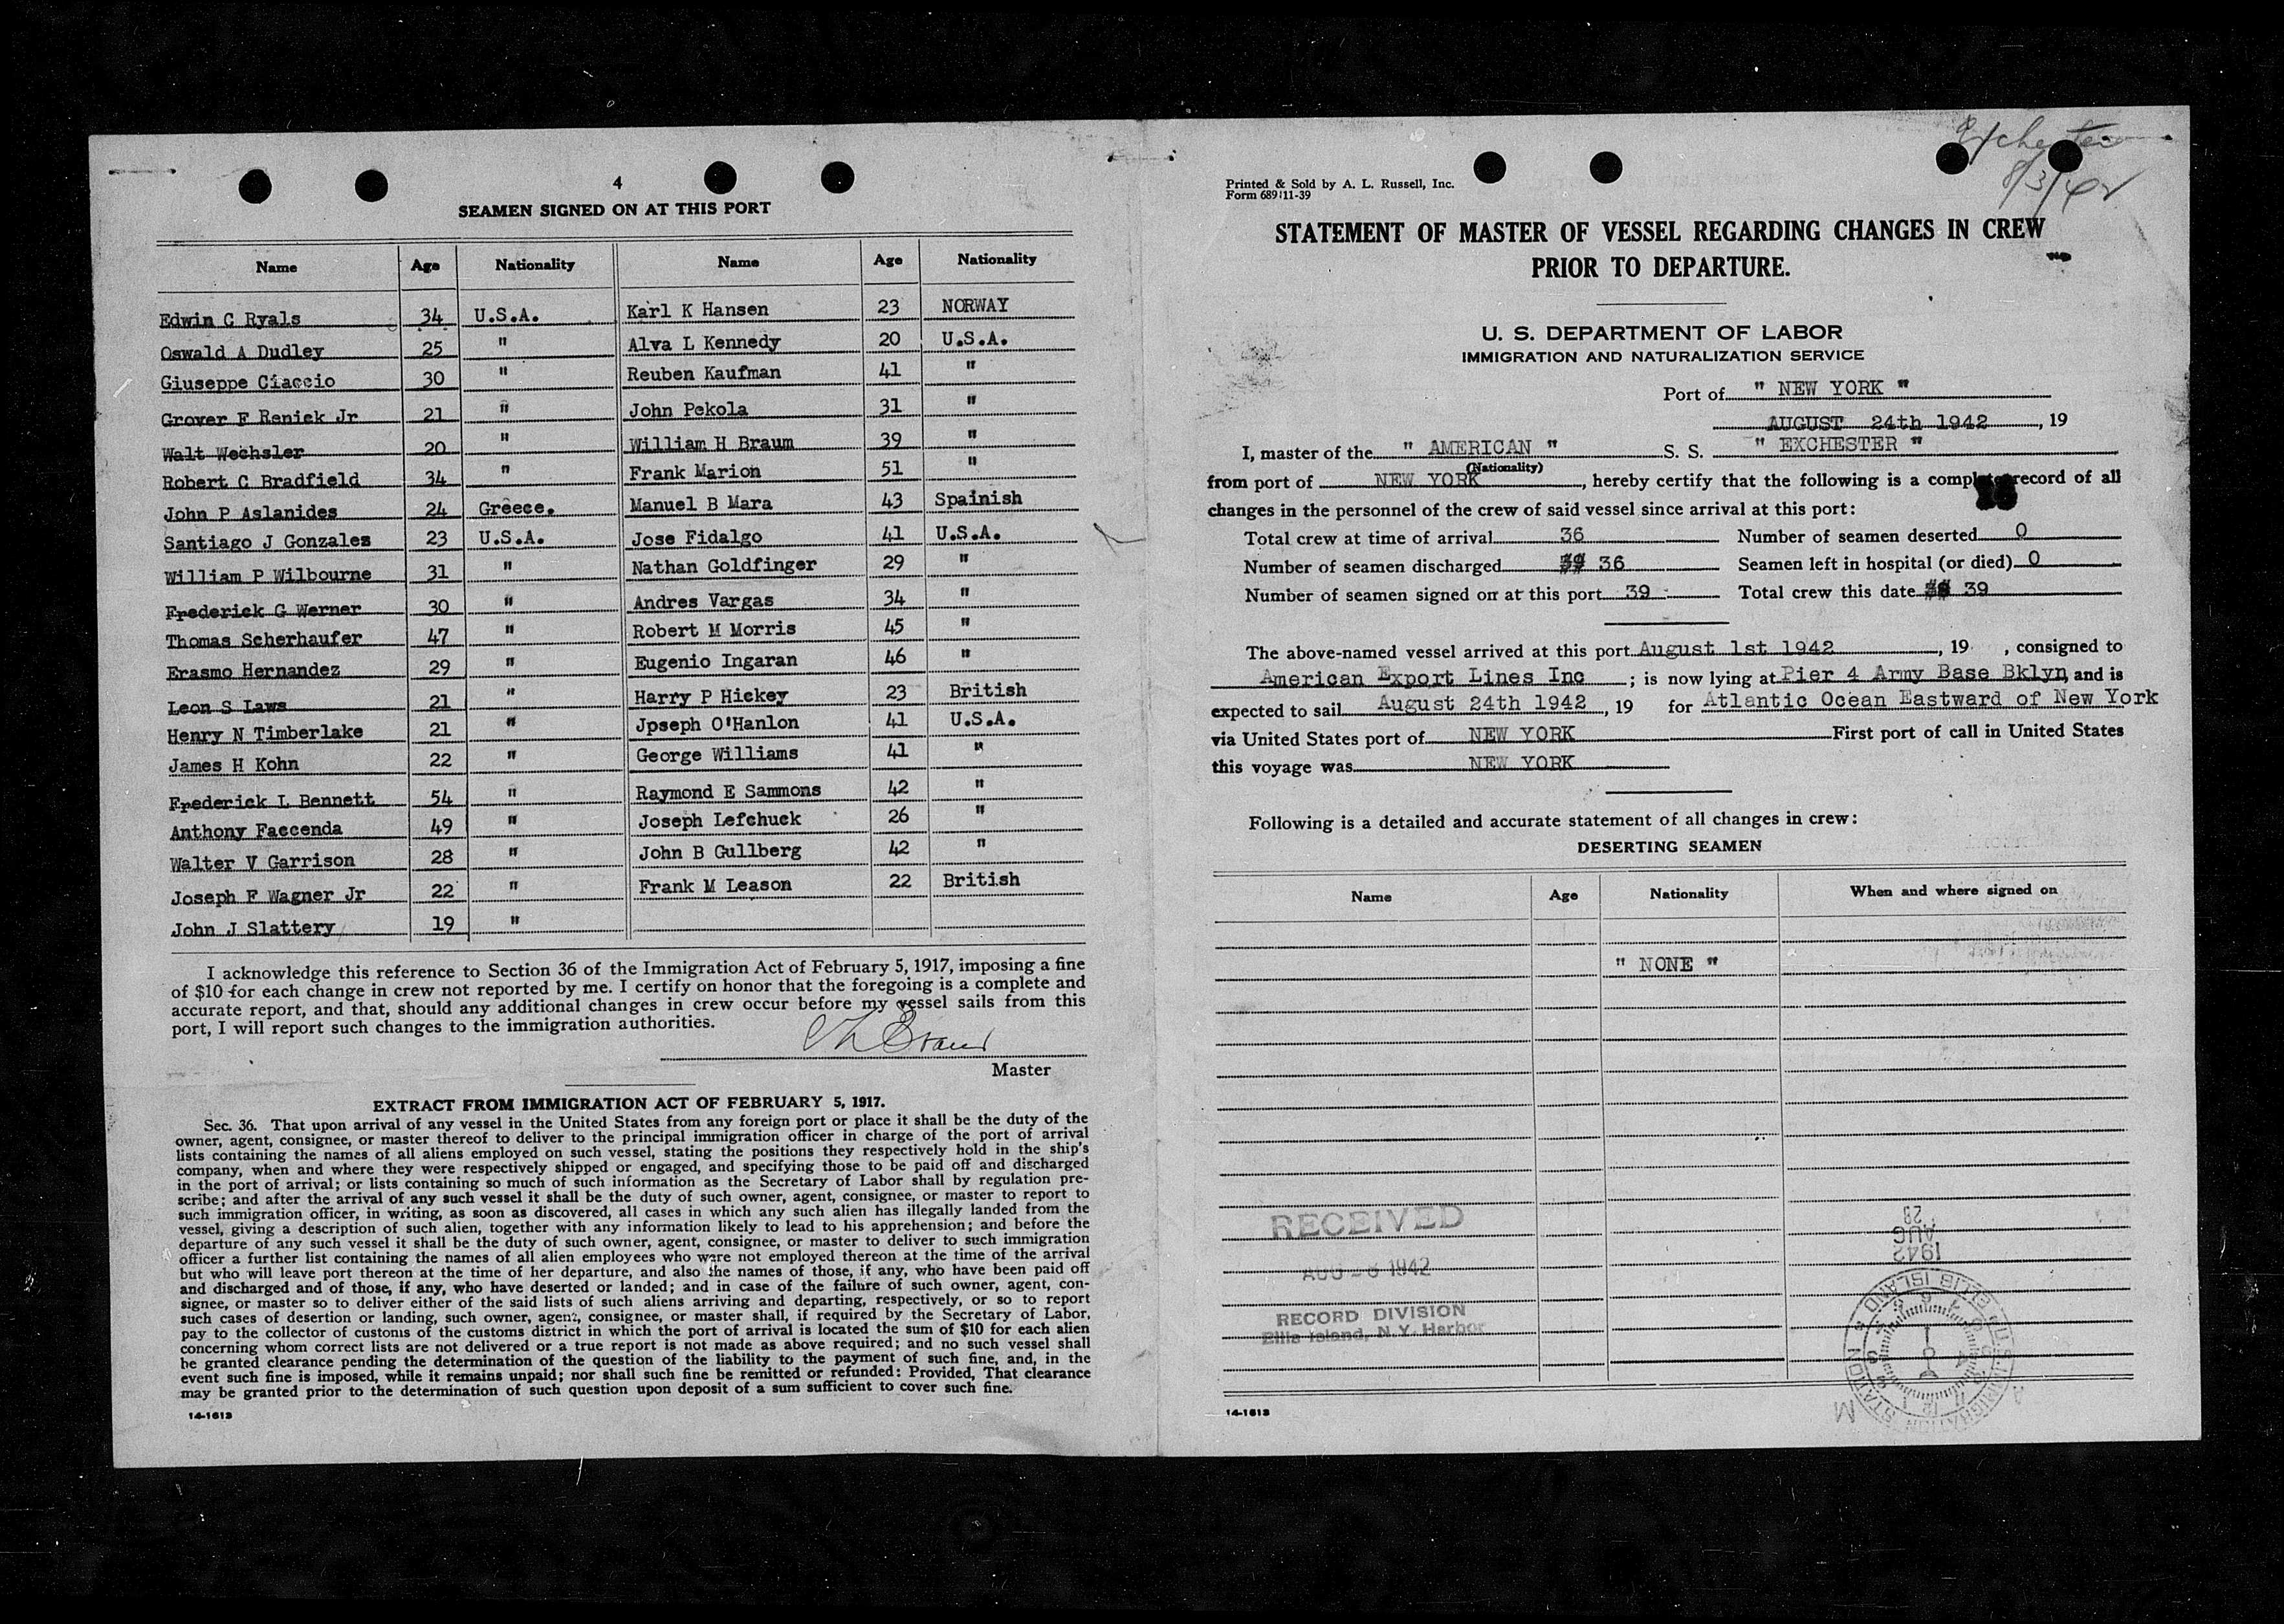 4
SEAMEN SIGNED ON AT THIS PORT
Name Age Nationality Name Age Nationality
Edwin C Ryals 34 U.S.A. Karl K Hansen 23 NORWAY
Oswald A Dudley 25 " Alva L Kennedy 20 U.S.A.
Giuseppe Ciaccio 30 " Reuben Kaufman 41 "
Grover F Renick Jr 21 " John Pekola 31 "
Walt Wechsler 20 " William H Braum 39 "
Robert C Bradfield 34 " Frank Marion 51 "
John P Aslanides 24 Greece. Manuel B Mara 43 Spainish
Santiago J Gonzales 23 U.S.A. Jose Fidalgo 41 U.S.A.
William P Wilbourne 31 " Nathan Goldfinger 29 "
Frederick G Werner 30 " Andres Vargas 34 "
Thomas Scherhaufer 47 " Robert M Morris 45 "
Erasmo Hernandez 29 " Eugenio Ingaran 46 "
Leon S Laws 21 " Harry P Hickey 23 British
Henry N Timberlake 21 " Jpseph O'Hanlon 41 U.S.A.
James H Kohn 22 " George Williams 41 "
Frederick L Bennett 54 " Raymond E Sammons 42 "
Anthony Faccenda 49 " Joseph Lefchuck 26 "
Walter V Garrison 28 " John B Gullberg 42 "
Joseph F Wagner Jr 22 " Frank M Leason 22 British
John J Slattery 19 "
I acknowledge this reference to Section 36 of the Immigration Act of February 5, 1917, imposing a fine
of $10 for each change in crew not reported by me. I certify on honor that the foregoing is a complete and
accurate report, and that, should any additional changes in crew occur before my vessel sails from this
port, I will report such changes to the immigration authorities.
Master
EXTRACT FROM IMMIGRATION ACT OF FEBRUARY 5, 1917.
Sec. 36. That upon arrival of any vessel in the United States from any foreign port or place it shall be the duty of the
owner, agent, consignee, or master thereof to deliver to the principal immigration officer in charge of the port of arrival
lists containing the names of all aliens employed on such vessel, stating the positions they respectively hold in the ship's
company, when and where they were respectively shipped or engaged, and specifying those to be paid off and discharged
in the port of arrival; or lists containing so much of such information as the Secretary of Labor shall by regulation pre-
scribe; and after the arrival of any such vessel it shall be the duty of such owner, agent, consignee, or master to report to
such immigration officer, in writing, as soon as discovered, all cases in which any such alien has illegally landed from the
vessel, giving a description of such alien, together with any information likely to lead to his apprehension; and before the
departure of any such vessel it shall be the duty of such owner, agent, consignee, or master to deliver to such immigration
officer a further list containing the names of all alien employees who were not employed thereon at the time of the arrival
but who will leave port thereon at the time of her departure, and also the names of those, if any, who have been paid off
and discharged and of those, if any, who have deserted or landed; and in case of the failure of such owner, agent, con-
signee, or master so to deliver either of the said lists of such aliens arriving and departing, respectively, or so to report
such cases of desertion or landing, such owner, agent, consignee, or master shall, if required by the Secretary of Labor,
pay to the collector of customs of the customs district in which the port of arrival is located the sum of $10 for each alien
concerning whom correct lists are not delivered or a true report is not made as above required; and no such vessel shall
be granted clearance pending the determination of the question of the liability to the payment of such fine, and, in the
event such fine is imposed, while it remains unpaid; nor shall such fine be remitted or refunded: Provided, That clearance
may be granted prior to the determination of such question upon deposit of a sum sufficient to cover such fine.
14-1613
Exchester
8/3/42
Printed & Sold by A. L. Russell, Inc.
Form 689 11-39
STATEMENT OF MASTER OF VESSEL REGARDING CHANGES IN CREW
PRIOR TO DEPARTURE.
U. S. DEPARTMENT OF LABOR
IMMIGRATION AND NATURALIZATION SERVICE
Port of " NEW YORK "
AUGUST 24th 1942, 19
I, master of the " AMERICAN " S. S. " EXCHESTER "
(Nationality)
from port of NEW YORK, hereby certify that the following is a complete record of all
changes in the personnel of the crew of said vessel since arrival at this port:
Total crew at time of arrival 36 Number of seamen deserted 0
Number of seamen discharged 36 Seamen left in hospital (or died) 0
Number of seamen signed on at this port 39 Total crew this date 39
The above-named vessel arrived at this port August 1st 1942, 19 , consigned to
American Export Lines Inc ; is now lying at Pier 4 Army Base Bklyn, and is
expected to sail August 24th 1942, 19 for Atlantic Ocean Eastward of New York
via United States port of NEW YORK First port of call in United States
this voyage was NEW YORK
Following is a detailed and accurate statement of all changes in crew:
DESERTING SEAMEN
Name Age Nationality When and where signed on
" NONE "
RECEIVED
AUG 26 1942
RECORD DIVISION
Ellis Island, N.Y. Harbor
1942
AUG
28
U.S. IMMIGRATION STATION ELLIS ISLAND
14-1613